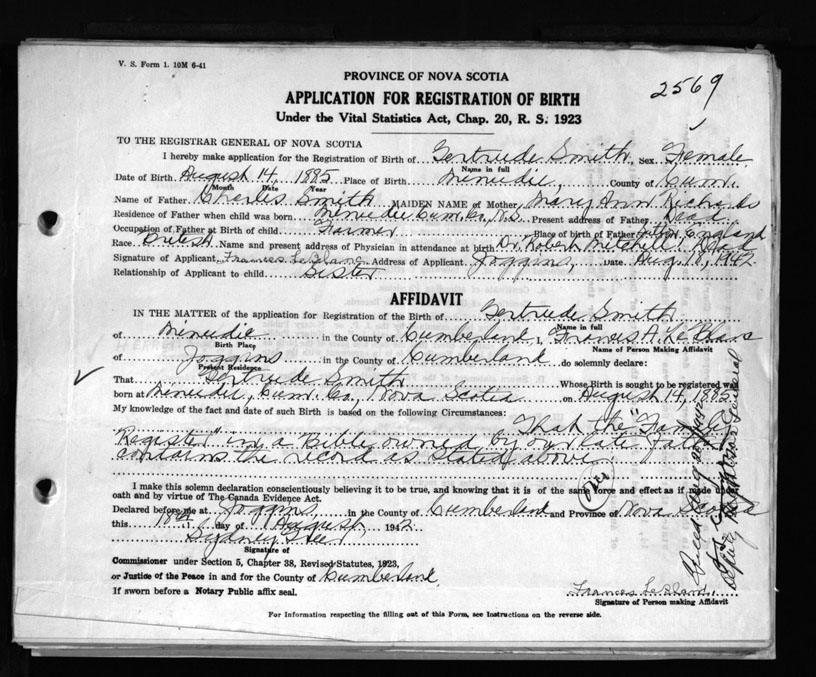 V. S. Form 1. 10M 6-41
2569
PROVINCE OF NOVA SCOTIA
APPLICATION FOR REGISTRATION OF BIRTH
Under the Vital Statistics Act, Chap. 20, R. S. 1923
TO THE REGISTRAR GENERAL OF NOVA SCOTIA
I hereby make application for the Registration of Birth of Gertrude Smith, Sex Female
Name in full
Date of Birth August 14, 1885 Place of Birth Minudie, County of Cum.
Month Date Year
Name of Father Charles Smith MAIDEN NAME of Mother Mary Ann Richards
Residence of Father when child was born Minudie Cum. Co., N.S. Present address of Father Dead
Occupation of Father at Birth of child Farmer Place of birth of Father England
Race British Name and present address of Physician in attendance at birth Dr. Robert Mitchell Dead
Signature of Applicant, Frances LeBlanc Address of Applicant Joggins, Date Aug. 18, 1942
Relationship of Applicant to child Sister
AFFIDAVIT
IN THE MATTER of the application for Registration of the Birth of Gertrude Smith
Name in full
of Minudie in the County of Cumberland I, Frances A. LeBlanc
Birth Place Name of Person Making Affidavit
of Joggins in the County of Cumberland do solemnly declare:
Present Residence
That Gertrude Smith Whose Birth is sought to be registered was
born at Minudie, Cum. Co., Nova Scotia on August 14, 1885
My knowledge of the fact and date of such Birth is based on the following Circumstances:
That the "Family
Register" in a Bible owned by our late Father
contains the record as stated above
I make this solemn declaration conscientiously believing it to be true, and knowing that it is of the same force and effect as if made under
oath and by virtue of The Canada Evidence Act.
Declared before me at Joggins, in the County of Cumberland and Province of Nova Scotia
this 18th day of August, 1942
Sydney
Signature of
Commissioner under Section 5, Chapter 38, Revised Statutes, 1923,
or Justice of the Peace in and for the County of Cumberland.
If sworn before a Notary Public affix seal.
Frances LeBlanc
Signature of Person making Affidavit
For Information respecting the filling out of this Form, see Instructions on the reverse side.